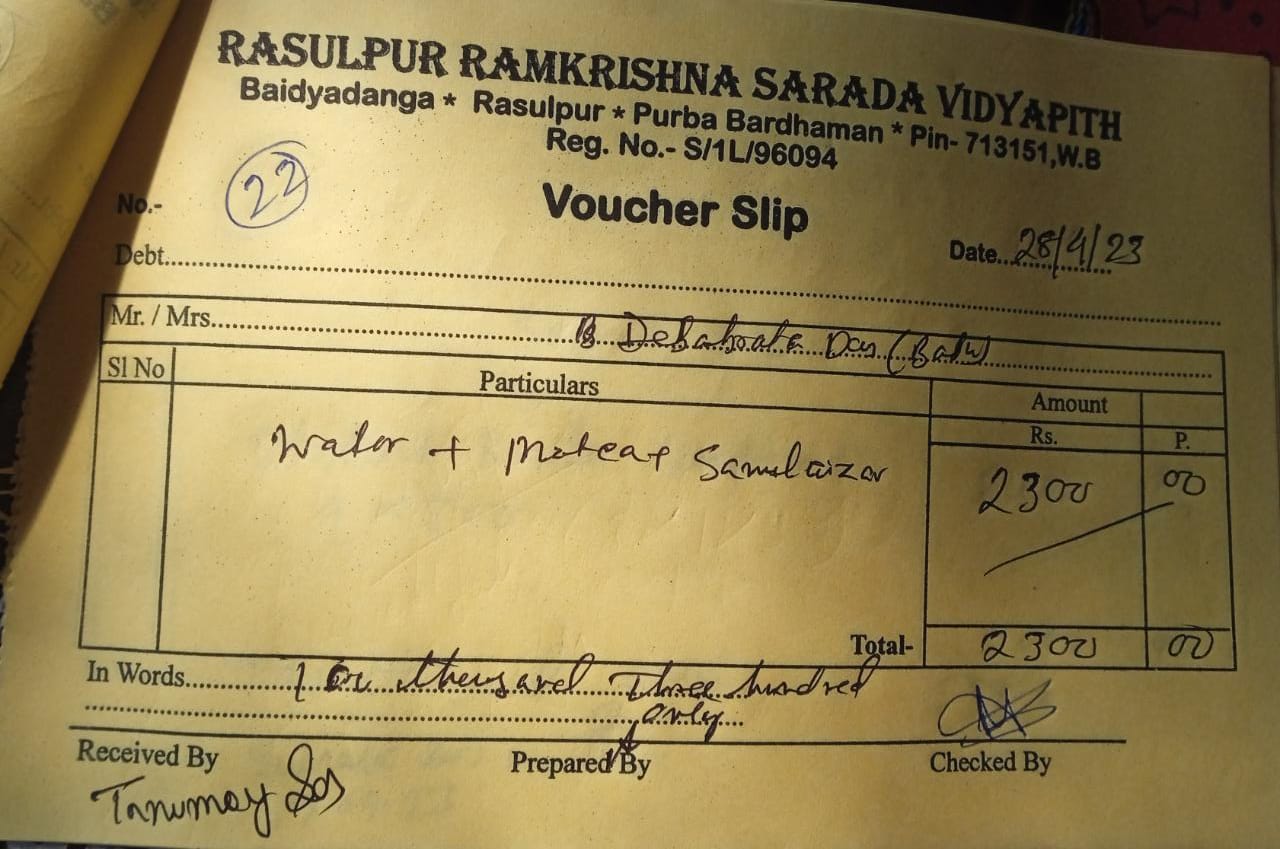 RASULPUR RAMKRISHNA SARADA VIDYAPITH
Baidyadanga * Rasulpur * Purba Bardhaman * Pin- 713151,W.B
Reg. No.- S/1L/96094
No.- 22
Voucher Slip
Date...28/4/23
Debt.
Mr. / Mrs. Debabrata Das (Batu)
Sl No Particulars Amount
Rs. P.
Water + 2300 00
Total- 2300 00
In Words. thousand Three hundred
only
Received By Prepared By Checked By
Tanumoy Das